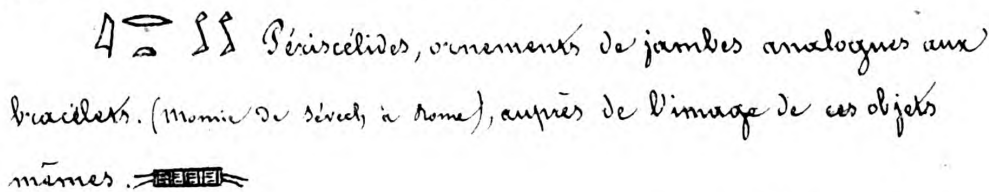 Périscélides, ornements de jambes analogues aux
bracelets. (Momie de Sévech à Rome), auprès de l'image de ces objets
mêmes.